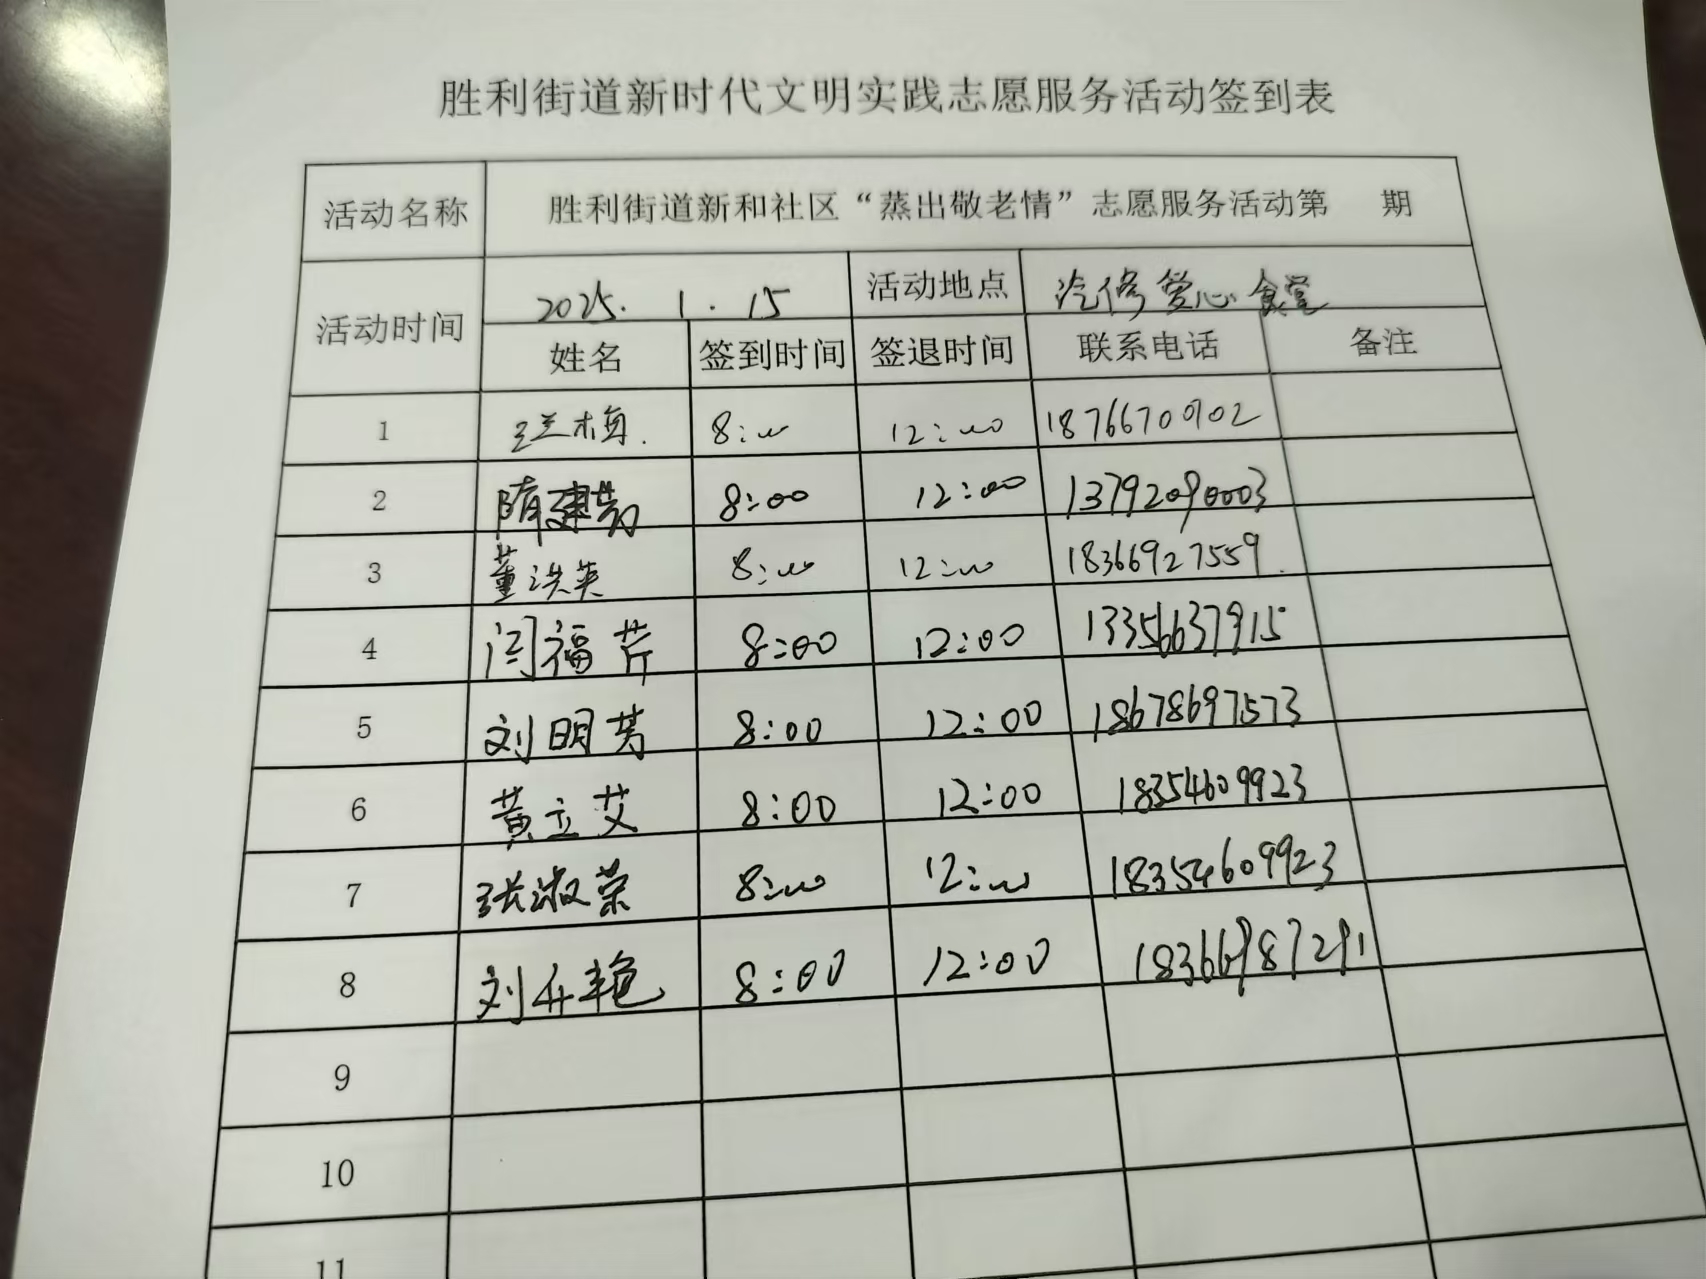 胜利街道新时代文明实践志愿服务活动签到表
活动名称 胜利街道新和社区“蒸出敬老情”志愿服务活动第 期
活动时间 2025.1.15 活动地点 汽修爱心食堂
姓名 签到时间 签退时间 联系电话 备注
1 王兰梅. 8:00 12:00 18766700902
2 隋建芳 8:00 12:00 13792090003
3 董洪英 8:00 12:00 18366927559.
4 闫福芹 8:00 12:00 13356637915
5 刘明芳 8:00 12:00 18678697573
6 黄立艾 8:00 12:00 18354609923
7 张淑荣 8:00 12:00 18354609923
8 刘艳 8:00 12:00 18366987291
9
10
11